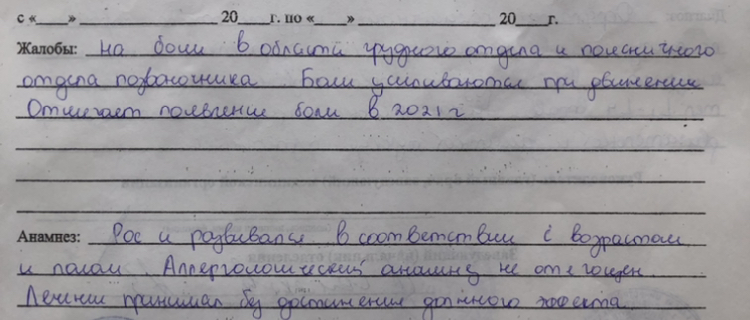 с «____» ____________________ 20____г. по «____» ____________________ 20____г.
Жалобы: на боли в области грудного отдела и поясничного
отдела позвоночника. Боли усиливаются при движении
Отмечает появление боли в 2021 г
Анамнез: Рос и развивался в соответствии с возрастом
и полом. Аллергологический анамнез не отягощен.
Лечение принимал без достижения должного эффекта.